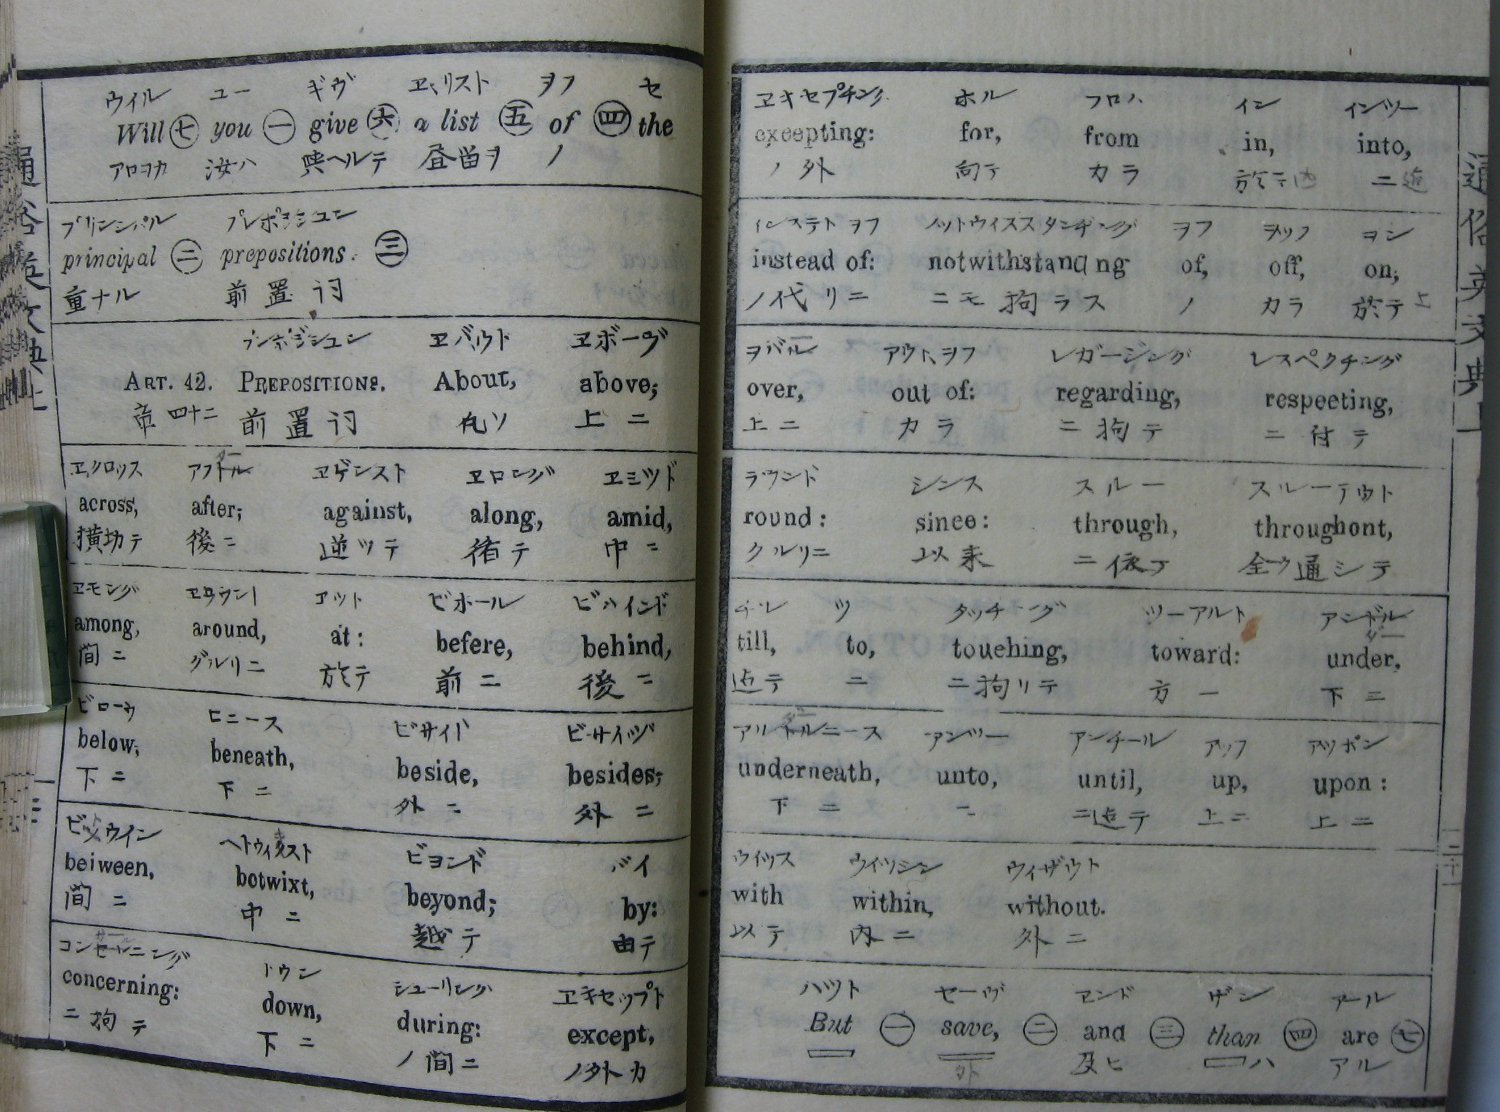 ウイル ユー ギヴ ヱ、リスト ヲフ セ
Will ㊆ you ㊀ give ㊅ a list ㊄ of ㊃ the
アロヲカ 汝ハ 與ヘルテ 昼畄ヲ ノ
プリンシパル プレポヲシユン
principal ㊁ prepositions. ㊂
重ナル 前置詞
ヱバウト ヱボーヴ
ART. 42. PREPOSITIONS. About, above;
章四十二 前置詞 凡ソ 上ニ
ヱクロッス アフトル ヱゲンスト ヱロング ヱミツド
across, after; against, along, amid,
横切テ 後ニ 逆ツテ 中ニ
ヱモング ヱラウント アット ビホール ビハインド
among, around, at: befere, behind,
間ニ グルリニ 於テ 前ニ 後ニ
ビローウ ビニース ビサイド ビサイツ
below; beneath, beside, besides;
下ニ 下ニ 外ニ 外ニ
ビヨンド バイ
beiween, botwixt, beyond; by:
間ニ 中ニ 越テ 由テ
コンセルニング ドウン ジューリング ヱキセップト
concerning: down, during: except,
ニ拘テ 下ニ ノ間ニ ノ外カ
通俗英文典上
ヱキセプチング ホル フロム イン インツー
exeepting: for, from in, into,
ノ外 向テ カラ 於テ内 ニ迄
インステト ヲフ ノットウイススタンヂング ヲフ ヲッフ ヨン
instead of: notwithstanding of, off, on;
ノ代リニ ニモ拘ラス ノ カラ 於テ上
ヲバル アウト、ヲフ レガージング レスペクチング
over, out of: regarding, respeeting,
上ニ カラ ニ拘テ ニ付テ
ラウンド シンス スルー スルーアウト
round: sinee: through, throughont,
クルリニ 以来 ニ依テ 全ク通シテ
チル ツ タッチング ツーアルト アンドル
till, to, touehing, toward: under,
迄テ ニ ニ拘リテ 方ー 下ニ
アンドルニース アンツー アンチール アップ アッポン
underneath, unto, until, up, upon:
下ニ ニ ニ迄テ 上ニ 上ニ
ウイツス ウイツシン ウィザウト
with within, without.
以テ 内ニ 外ニ
バツト セーヴ ヱンド ザン アール
But ㊀ save, ㊁ and ㊂ than ㊃ are ㊆
外 及ヒ ハ アル